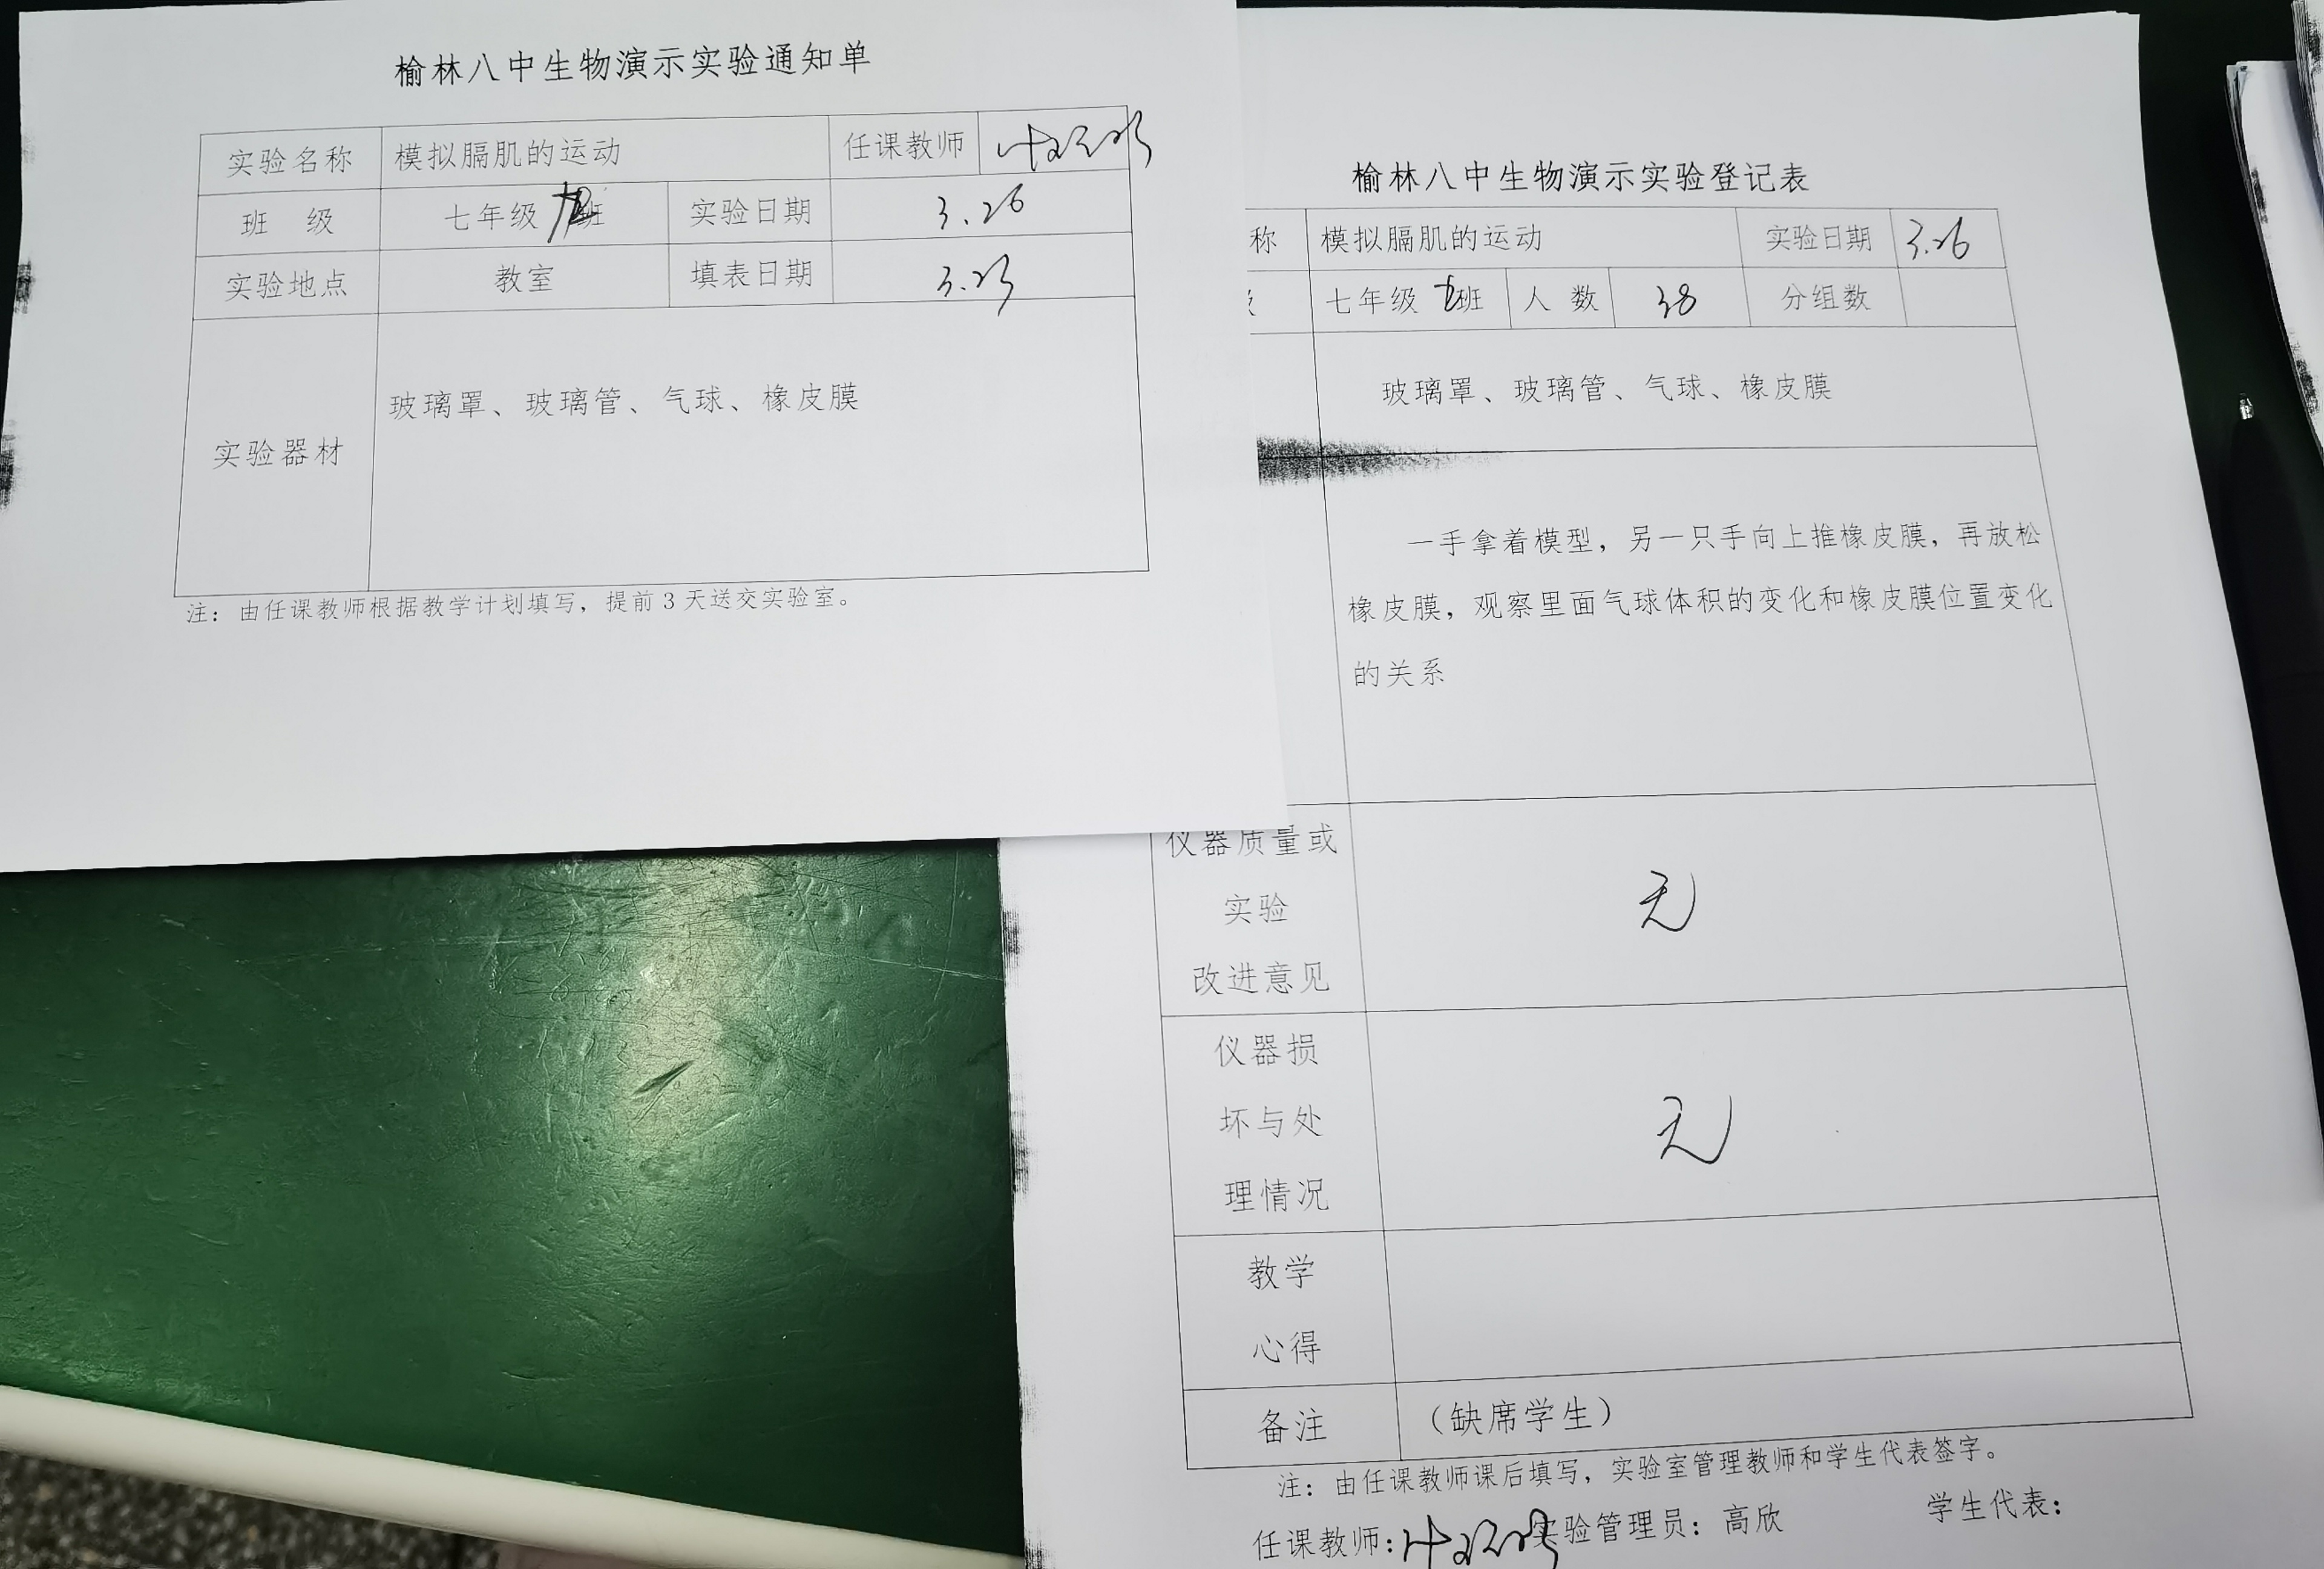 榆林八中生物演示实验通知单
实验名称 模拟膈肌的运动 任课教师
班 级 七年级 班 实验日期 3.26
实验地点 教室 填表日期 3.23
实验器材 玻璃罩、玻璃管、气球、橡皮膜
注：由任课教师根据教学计划填写，提前3天送交实验室。
榆林八中生物演示实验登记表
称 模拟膈肌的运动 实验日期 3.26
七年级 班 人 数 38 分组数
玻璃罩、玻璃管、气球、橡皮膜
一手拿着模型，另一只手向上推橡皮膜，再放松
橡皮膜，观察里面气球体积的变化和橡皮膜位置变化
的关系
仪器质量或
实验 无
改进意见
仪器损
坏与处 无
理情况
教学
心得
备注 （缺席学生）
注：由任课教师课后填写，实验室管理教师和学生代表签字。
任课教师： 实验管理员：高欣 学生代表：